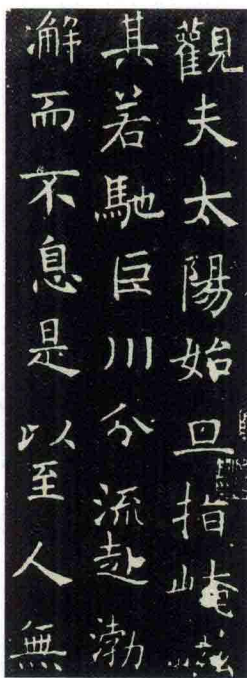 觀夫太陽始旦指崦嵫
其若馳臣川分流赴渤
澥而不息是以至人無